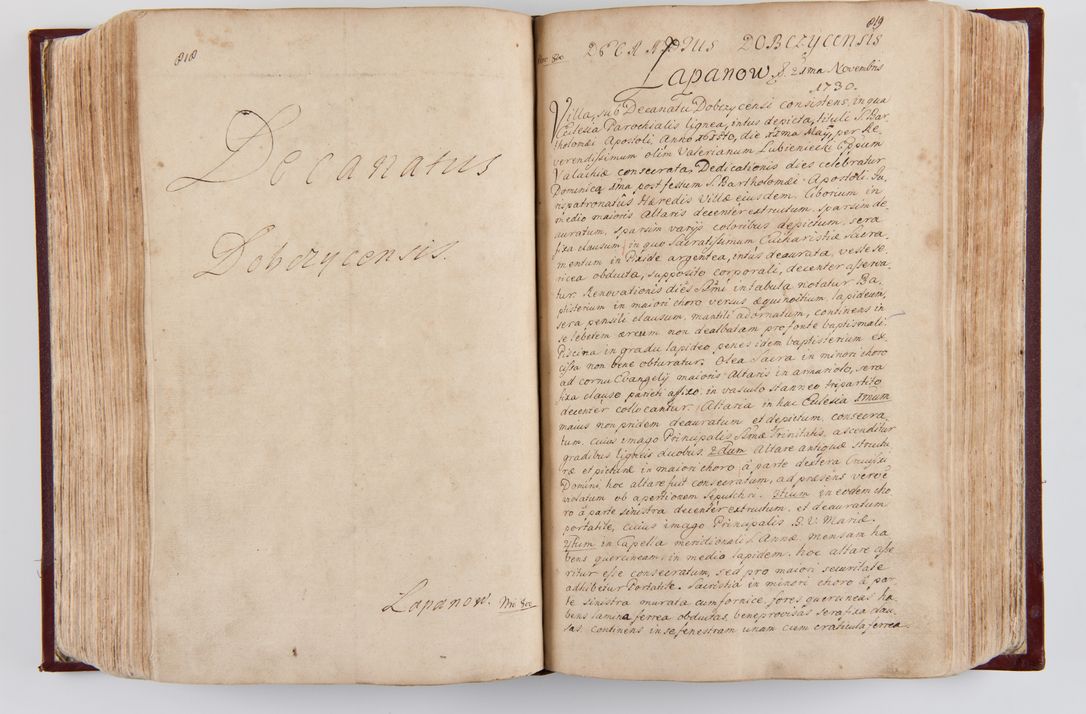 818
Decanatus
Dobczycensis.
Łapanow. Nro 800
819
Nro 800 DECANATUS DOBCZYCENSIS
Łapanow 8. 21ma Novembris
1730.
Villa, sub Decanatu Dobczycensi consistens, in qua
Ecclesia Parochialis lignea, intus depicta, tituli S. Bar
tholomæi Apostoli, Anno die Maij, per Re
verendissimum olim Valerianum Lubieniecki Eppum
Valachiæ consecrata, Dedicationis dies celebratur
Dominica 1ma post festum S. Bartholomæi Apostoli. Iu
rispatronatûs Hæredis Villæ eiusdem. Ciborium in
medio maioris Altaris decentèr extructum, sparsim de
auratum, sparsim varijs coloribus depictum, sera
fixa clausum, in quo Sacratissimum Eucharistiæ Sacra
mentum in Pixide argentea, intus deaurata, veste se
ricea obducta, supposito corporali, decenter asserva
tur. Renovationis dies SSmi in tabula notatur. Ba
ptisterium in maiori choro versus æquinoctium, lapideum,
sera pensili clausum, mantili adornatum, continens in
se lebetem æreum non dealbatum pro fonte baptismali.
Piscina in gradu lapideo penes idem baptisterium ex
cista non bene obturatur. Olea Sacra in minori choro
ad cornu Evangelij maioris Altaris in armariolo, sera
fixa clauso parieti affixo, in vasculo stanneo tripartito
decenter collocantur. Altaria in hac Ecclesia 1mum
maius non pridem deauratum et depictum, consecra
tum, cuius imago Principalis SSmæ Trinitatis, ascenditur
gradibus ligneis duobus. 2dum Altare antiquæ structu
ræ et picturæ in maiori choro à parte dextera Crucifixi
Domini, hoc altare fuit consecratum, ad præsens verò
violatum ob apertionem sepulchri. 3tium in eodem cho
ro à parte sinistra decentèr extructum, et deauratum
portatile, cuius imago Principalis B. V. Mariæ.
4tum in Capella meridionali S. Annæ, mensam ha
bens querceam, in medio lapidem. hoc altare asse
ritur esse consecratum, sed pro maiori securitate
adhibetur Portatile. Sacristia in minori choro à par
te sinistra murata cum fornice, fores querceas ha
bens lamina ferrea obductas, bene provisas sera fixa clau
sas, continens in se fenestram unam cum craticula ferrea